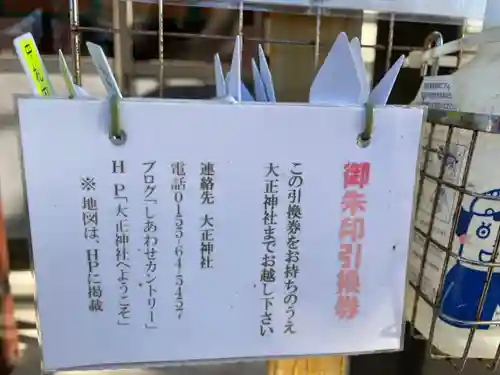 御朱印引換券
この引換券をお持ちのうえ
大正神社までお越し下さい
連絡先　大正神社
電話０１５５-６４-５４５７
ブログ「しあわせカントリー」
ＨＰ「大正神社へようこそ」
※　地図は、ＨＰに掲載